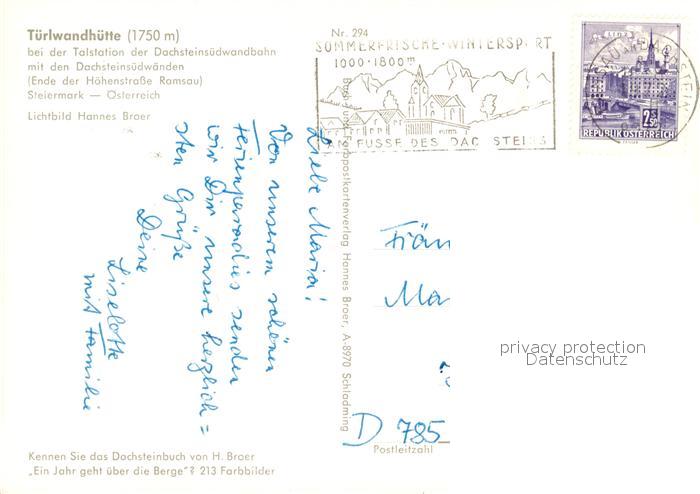 Türlwandhütte (1750 m)
bei der Talstation der Dachsteinsüdwandbahn
mit den Dachsteinsüdwänden
(Ende der Höhenstraße Ramsau)
Steiermark — Österreich
Lichtbild Hannes Broer
Nr. 294
SOMMERFRISCHE·WINTERSPORT
1000-1800m
AM FUSSE DES DACHSTEINS
LINZ
REPUBLIK ÖSTERREICH
2S50
Liebe Maria!
Von unserem schönen
Ferienparadies senden
wir Dir unsere herzlich=
sten Grüße
Deine
Liselotte
mit Familie
Farbpostkartenverlag Hannes Broer, A-8970 Schladming
Fräu
Ma
D 785
Postleitzahl
privacy protection
Datenschutz
Kennen Sie das Dachsteinbuch von H. Broer
„Ein Jahr geht über die Berge"? 213 Farbbilder